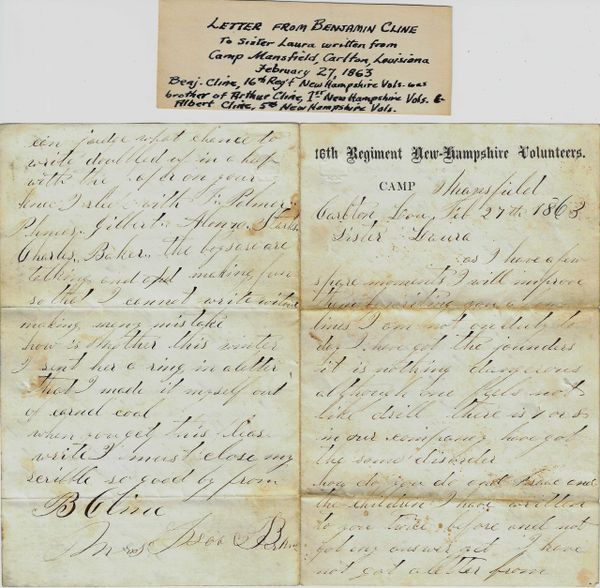 LETTER FROM BENJAMIN CLINE
To Sister Laura written from
Camp Mansfield, Carlton, Louisiana
February 27, 1863
Benj. Cline, 16th Reg't New Hampshire Vols. was
brother of Arthur Cline, 1st New Hampshire Vols. &
Albert Cline, 5th New Hampshire Vols.
16th Regiment New-Hampshire Volunteers.
CAMP Mansfield
Carlton Lou, Feb 27th 1863
Sister Laura
as I have a few
spare moments I will improve
them to write you a few
lines I am not on duty to
day I have got the jounders
it is nothing dangerous
although one feels not
like drill there is 7 or 8
in our company have got
the same disorder
how do you do and Isaac and
the children I have written
to you twice before and not
got any answer yet I have
not got a letter from
can judge what chance to
write doubled up in a heap
with the on your
knee I with Palmer
Gilbert Alonzo
Charles Baker the boys are
talking and making fun
so that I cannot write without
making meny mistake
how is Mother this winter
I sent her a ring in a letter
that I made it myself out
of canel coal
when you get this pleas
write I must close my
scrible so good by from
B Cline
Mrs Isac